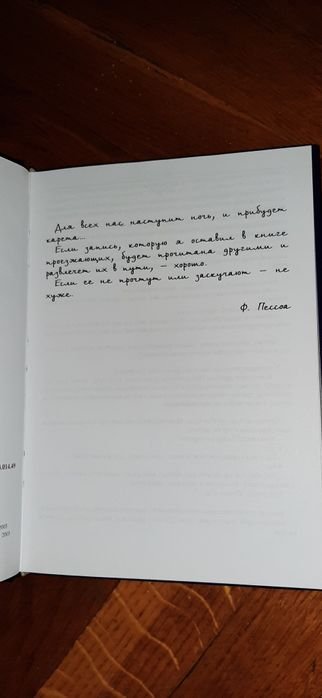 Для всех нас наступит ночь, и прибудет
карета...
Если запись, которую я оставил в книге
проезжающих, будет прочитана другими и
развлечет их в пути, — хорошо.
Если ее не прочтут или заскучают — не
хуже.
Ф. Пессоа